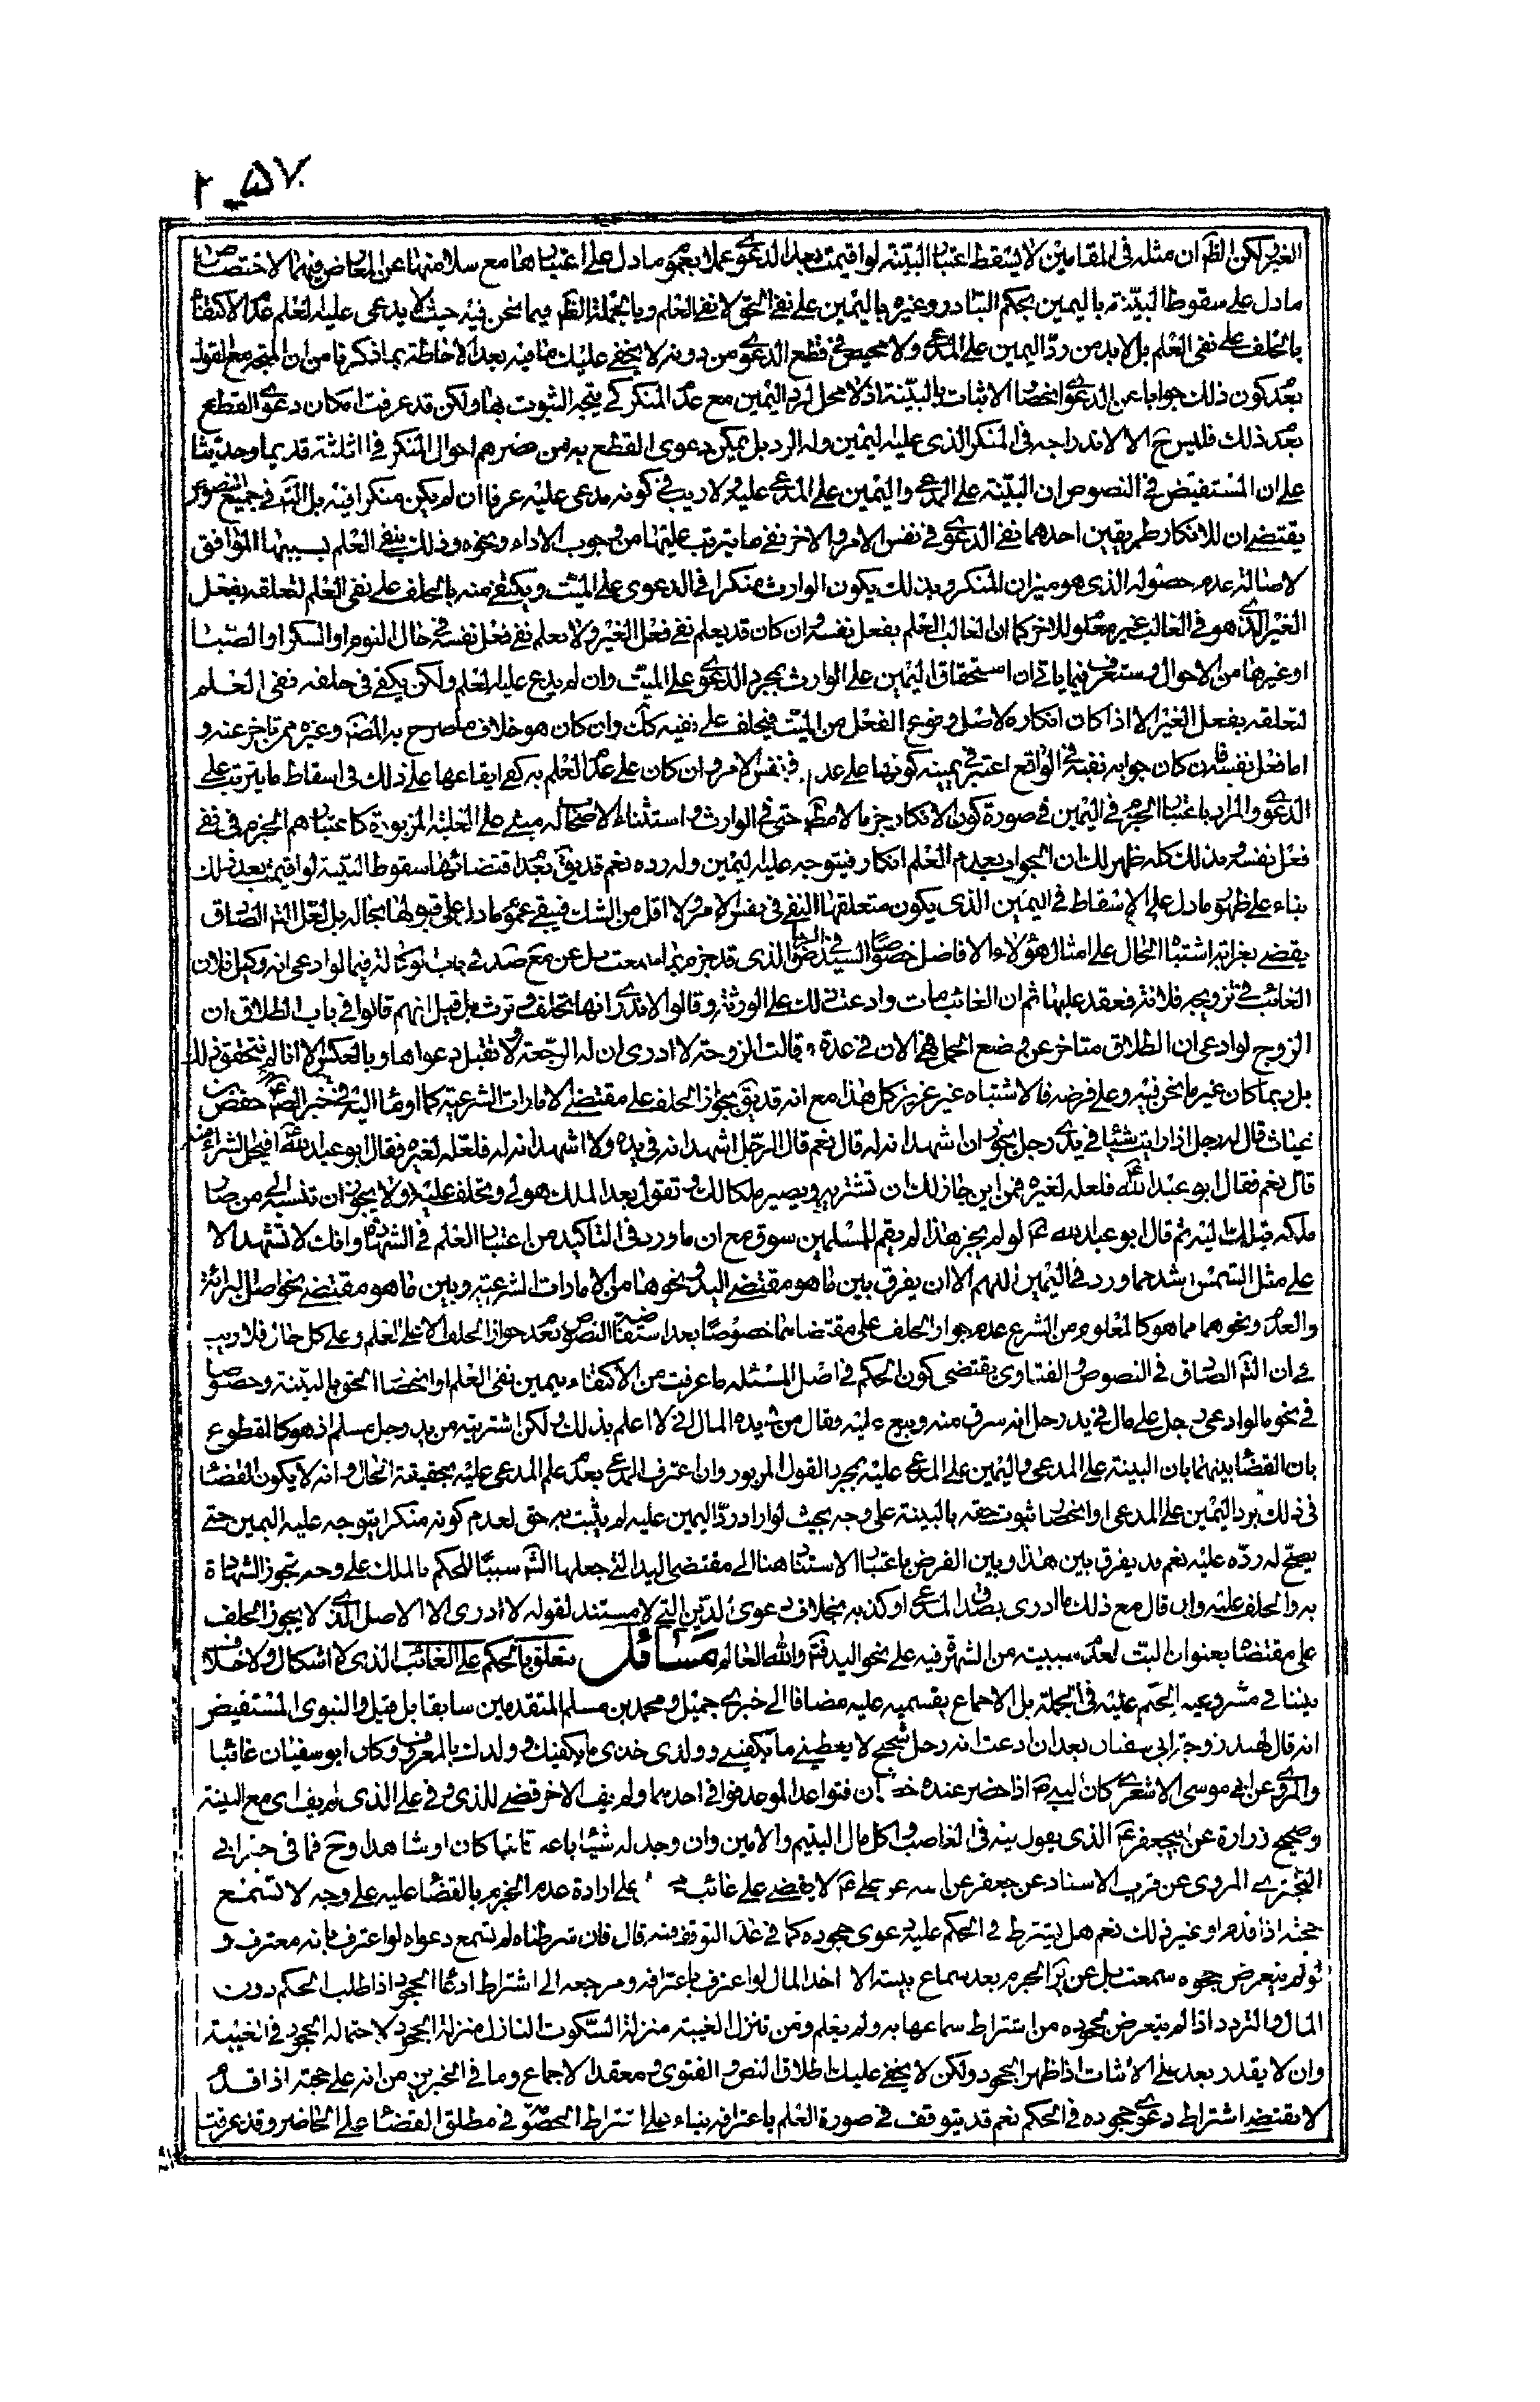 ٥٧ـ٢
الغير لكن الظ ان مثله فى المقامين لا يسقط اعتبار البينة لو اقيمت بعد الدعوى عملا بعموم ما دل على اعتبارها مع سلامتها عن المعارض فيهما لاختصاص
ما دل على سقوط البينة باليمين بحكم التبادر وغيره باليمين على نفى الحق لا نفى العلم وبالجملة الظ فيما نحن فيه حيث لا يدعى عليه العلم عدم الاكتفاء
بالحلف على نفى العلم بل لا بد من رد اليمين على المدعى ولا محيص فى قطع الدعوى من دونه ولا يخفى عليك ما فيه بعد الاحاطة بما ذكرنا من ان المتجه مع القول
بعدم كون ذلك جوابا عن الدعوى انحصار الاثبات بالبينة اذ لا محل لرد اليمين مع عدم المنكر كى يتجه الثبوت بها ولكن قد عرفت امكان دعوى القطع
بعد ذلك فليس ح الا لاندراجه فى المنكر الذى عليه اليمين وله الرد بل يمكن دعوى القطع به من حصرهم احوال المنكر فى الثلثة قديما وحديثا
على ان المستفيض فى النصوص ان البينة على المدعى واليمين على المدعى عليه ولا ريب فى كونه مدعى عليه عرفا ان لم يكن منكرا فيه بل التد فى جميع النصوص
يقتضى ان للانكار طريقين احدهما نفى الدعوى فى نفس الامر والاخر نفى ما يترتب عليها من وجوب الاداء ونحوه وذلك بنفى العلم بسببها الموافق
لاصالة عدم حصوله الذى هو ميزان المنكر وبذلك يكون الوارث منكرا فى الدعوى على الميت ويكتفى منه بالحلف على نفى العلم لتعلقه بفعل
الغير الذى هو فى الغالب غير معلوم للاخر كما ان الغالب العلم بفعل نفسه وان كان قد يعلم نفى فعل الغير ولا يعلم نفى فعل نفسه فى حال النوم او السكر او الصبا
او غيرها من الاحوال وستعرف فيما ياتى ان استحقاق اليمين على الوارث بمجرد الدعوى على الميت وان لم يدع عليه العلم ولكن يكفى فى حلفه نفى العلم
لتعلقه بفعل الغير الا اذا كان انكاره لاصل وقوع الفعل من الميت فيحلف على نفيه كك وان كان هو خلاف ما صرح به المص وغيره ممن تاخر عنه و
اما فعل نفسه فان كان جوابه نفيه فى الواقع اعتبر فى يمينه كونها على عدمه فى نفس الامر وان كان على عدم العلم به كفى ايقاعها على ذلك فى اسقاط ما يترتب على
الدعوى والمراد باعتبار الجزم فى اليمين فى صورة كون الانكار جزما لا مط حتى فى الوارث واستثناء الاصحاب له مبنى على الغلبة المزبورة كاعتبارهم الجزم فى نفى
فعل نفسه وبذلك كله ظهر لك ان الجواب بعدم العلم انكار فيتوجه عليه اليمين وله رده نعم قد يق بعدم اقتضائها سقوط البينة لو اقيمت بعد ذلك
بناء على ظهور ما دل على الاسقاط فى اليمين الذى يكون متعلقها النفى فى نفس الامر ولا اقل من الشك فيبقى عموم ما دل على قبولها بحاله بل لعل التد الصادق
يقضى بغرابة اشتباه الحال على امثال هؤلاء الافاضل خصوصا السيد فى الرياض الذى قد جزم بما سمعت بل عن مع صد فى باب الوكالة فيما لو ادعى انه وكيل فلان
الغائب فى تزويجه فلانة فعقد عليها ثم ان الغائب مات وادعت ذلك على الورثة وقالوا لا ندرى انها تحلف وترث بل قيل انهم قالوا فى باب الطلاق ان
الزوج لو ادعى ان الطلاق متاخر عن وضع الحمل فهى الان فى عدة وقالت الزوجة لا ادرى ان له الرجعة ولا تقبل دعواها وبالعكس الا انا لم نتحقق ذلك
بل ربما كان غير ما نحن فيه وعلى فرضه فالاشتباه غير عزيز كل هذا مع انه قد يق بجواز الحلف على مقتضى الامارات الشرعية كما اومأ اليه فى خبر حفص بن
غياث قال له رجل اذا رايت شيئا فى يدى رجل يجوز ان اشهد انه له قال نعم قال الرجل اشهد انه فى يده ولا اشهد انه له فلعله لغيره فقال ابو عبد الله افيحل الشراء منه
قال نعم فقال ابو عبد الله ع فلعله لغيره فمن اين جاز لك ان تشتريه ويصير ملكا لك وتقول بعد الملك هو لى وتحلف عليه ولا يجوز ان تنسبه الى من صار
ملكه قبله اليك ثم قال ابو عبد الله ع لو لم يجز هذا لم يقم للمسلمين سوق مع ان ما ورد فى التاكيد من اعتبار العلم فى الشهادة وانك لا تشهد الا
على مثل الشمس اشد مما ورد فى اليمين اللهم الا ان يفرق بين ما هو مقتضى اليد ونحوها من الامارات الشرعية وبين ما هو مقتضى نحو اصل البرائة
والعدم ونحوهما مما هو كالمعلوم من الشرع عدم جواز الحلف على مقتضاهما خصوصا بعد استفاضة النصوص بعدم جواز الحلف الا على العلم وعلى كل حال فلا ريب
فى ان التد الصادق فى النصوص والفتاوى يقتضى كون الحكم فى اصل المسئلة ما عرفت من الاكتفاء بيمين نفى العلم او انحصار الحق بالبينة وخصوصا
فى نحو ما لو ادعى رجل على مال فى يد رجل انه سرق منه وبيع عليه وقال من فى يده المال انى لا اعلم بذلك ولكن اشتريته من يد رجل مسلم اذ هو كالمقطوع
بان القضا بينهما بان البينة على المدعى واليمين على المدعى عليه بمجرد القول المزبور وان اعترف المدعى بعدم علم المدعى عليه بحقيقة الحال وانه لا يكون القضا
فى ذلك برد اليمين على المدعى او انحصار ثبوت حقه بالبينة على وجه بحيث لو اراد رد اليمين عليه لم يثبت به حق لعدم كونه منكرا يتوجه عليه اليمين حتى
يصح له رده عليه نعم قد يفرق بين هذا وبين الفرض باعتبار الاستناد هنا الى مقتضى اليد التى جعلها الش سببا للحكم بالملك على وجه تجوز الشهادة
به والحلف عليه وان قال مع ذلك ما ادرى بصدق المدعى او كذبه بخلاف دعوى الدين التى لا مستند لقوله لا ادرى الا الاصل الذى لا يجوز الحلف
على مقتضاه بعنوان البت لعدم سببيته من الشرع فيه على نحو اليد فتم والله العالم مسائل تتعلق بالحكم على الغائب الذى لا اشكال ولا خلاف
بيننا فى مشروعية الحكم عليه فى الجملة بل الاجماع بقسميه عليه مضافا الى خبرى جميل ومحمد بن مسلم المتقدمين سابقا بل قيل والنبوى المستفيض
انه قال لهند زوجة ابى سفيان بعد ان ادعت انه رجل شحيح لا يعطينى ما يكفينى وولدى خذى ما يكفيك وولدك بالمعروف وكان ابو سفيان غائبا
والمروى عن ابى موسى الاشعرى كان النبى ص اذا حضر عنده خصمان فتواعدا الموعد فوافى احدهما ولم يف الاخر قضى للذى وفى على الذى لم يف اى مع البينة
وصحيح زرارة عن ابيجعفر ع الذى يقول فيه فى الغاصب واكل مال اليتيم والامين وان وجد له شيئا باعه غائبا كان او شاهدا وح فما فى خبر ابى
البخترى المروى عن قرب الاسناد عن جعفر عن ابيه عن على ع لا يقضى على غائب على ارادة عدم الجزم بالقضا عليه على وجه لا تسمع
حجته اذا قدم او غير ذلك نعم هل يشترط فى الحكم عليه دعوى جحوده كما فى عد التوقف فيه قال فان شرطناه لم تسمع دعواه لو اعترف بانه معترف و
لو لم يتعرض لجحوده سمعت بل عن ير الجزم بعد سماع بينته الا اخذ المال لو اعترف باعترافه ومرجعه الى اشتراط ادعاء الجحود اذا طلب الحكم دون
المال والتردد اذا لم يتعرض لجحوده من اشتراط سماعها به ولم يعلم ومن تنزل الغيبة منزلة السكوت النازل منزلة الجحود لاحتماله الجحود فى الغيبة
وان لا يقدر بعد على الاثبات اذا ظهر الجحود ولكن لا يخفى عليك اطلاق النص والفتوى ومعقد الاجماع وما فى الخبرين من انه على حجته اذا قدم
لا يقتضى اشتراط دعوى جحوده فى الحكم نعم قد يتوقف فى صورة العلم باعترافه بناء على اشتراط الخصومة فى مطلق القضا على الحاضر وقد عرفت